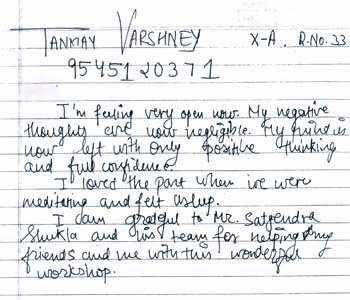 TANMAY VARSHNEY X-A, R.No.33
95451 20371
I'm feeling very open now. My negative
thoughts are now negligible. My mind is
now left with only positive thinking
and full confidence.
I loved the part when we were
meditating and felt asleep.
I am grateful to Mr. Satyendra
Shukla and his team for helping my
friends and me with this wonderful
workshop.